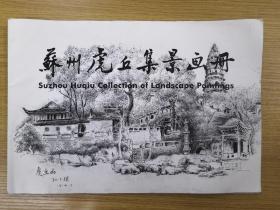 蘇州虎丘集景画册
Suzhou Huqiu Collection of Landscape Paintings
虎丘山